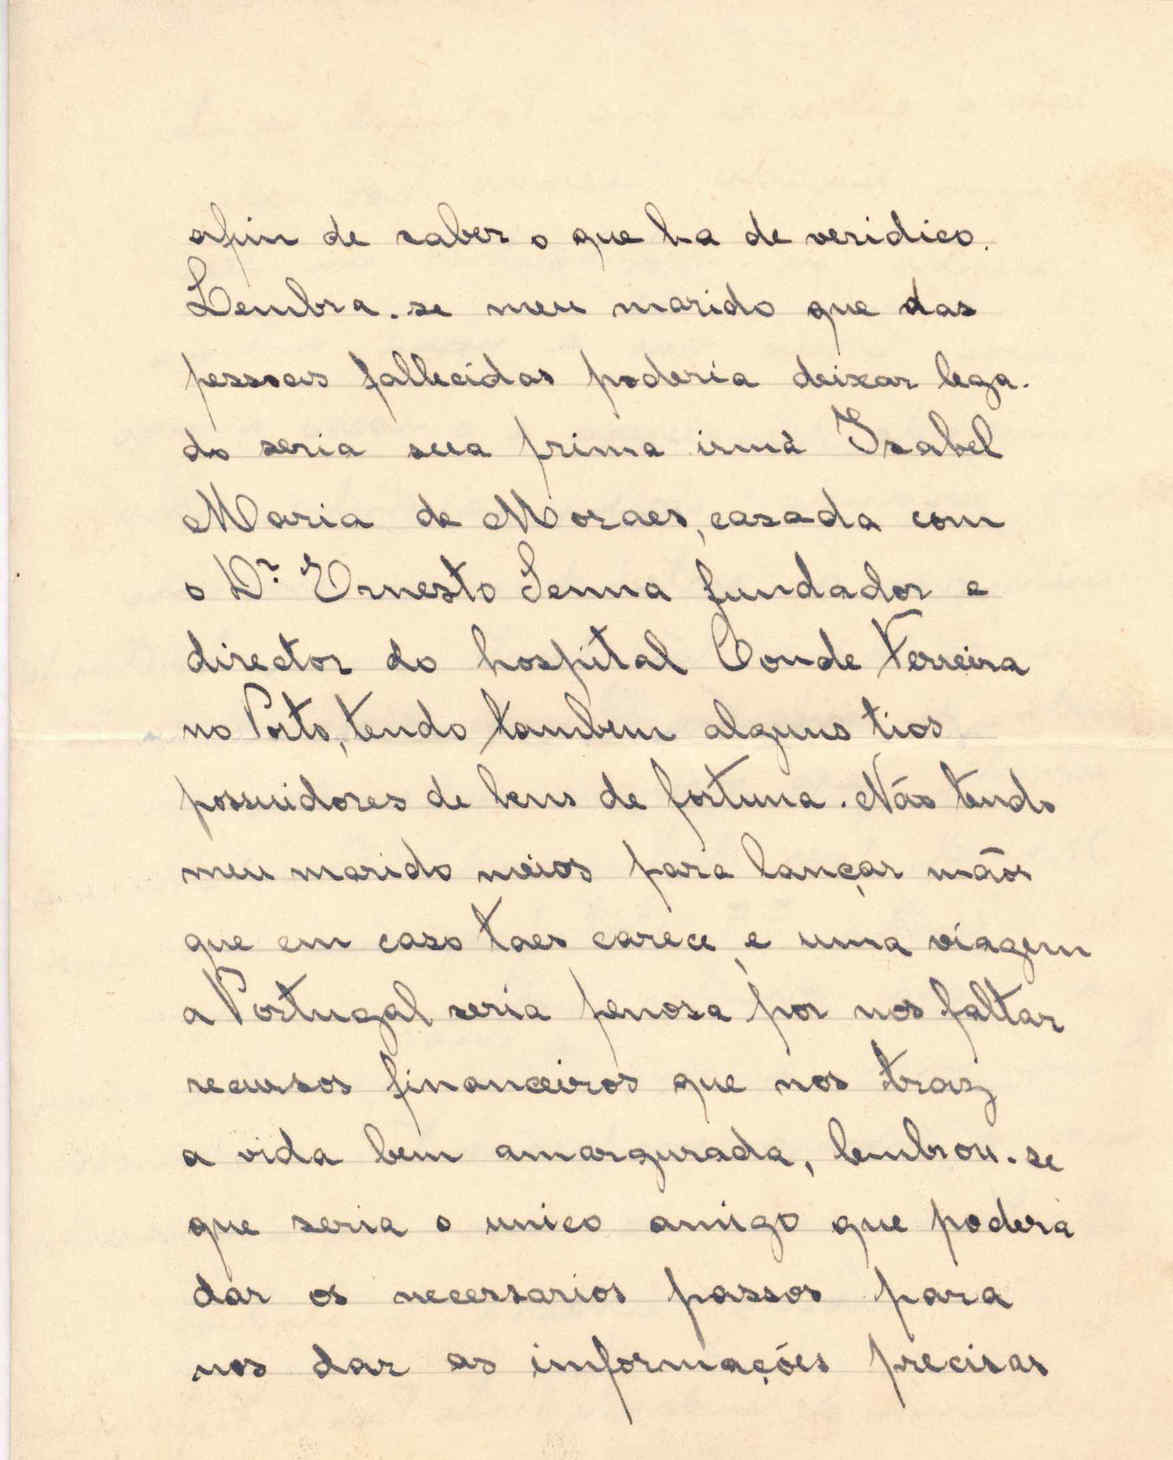 afin de saber o que ha de veridico.
Lembra-se meu marido que das
pessoas fallecidas poderia deixar lega-
do seria sua prima irmã Izabel
Maria de Moraes, casada com
o Dr. Ernesto Senna fundador e
director do hospital Conde Ferreira
no Porto, tendo tambem alguns tios
possuidores de bens de fortuna. Não tendo
meu marido meios para lançar mãos
que em caso taes carece, e uma viagem
a Portugal seria penosa por nos faltar
recursos financeiros que nos traz
a vida bem amargurada, lembrou-se
que seria o unico amigo que poderá
dar os necessarios passos para
nos dar as informações precisas